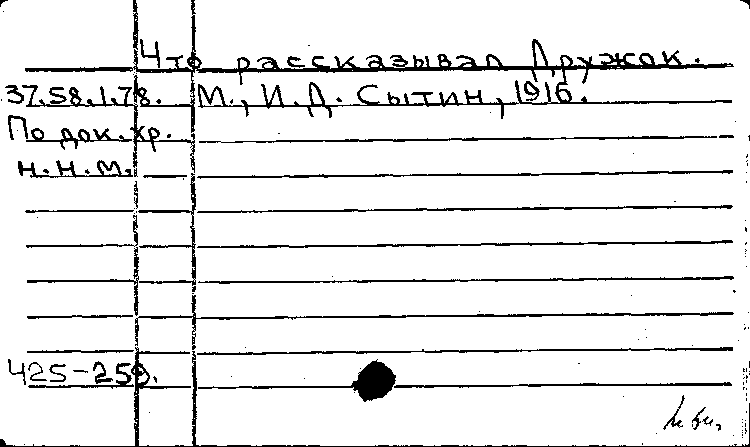 Что рассказывал Дружок.
37.58.1.78. М., И.Д. Сытин, 1916.
По док.хр.
н.н.м.
425-259.